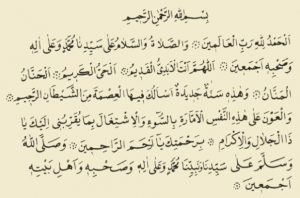 بِسْمِ اللّٰهِ الرَّحْمٰنِ الرَّحِيمِ
اَلْحَمْدُ لِلّٰهِ رَبِّ الْعَالَمِينَ ۞ وَالصَّلَاةُ وَالسَّلَامُ عَلٰى سَيِّدِنَا مُحَمَّدٍ وَعَلٰى اٰلِهِ
وَصَحْبِهِ اَجْمَعِينَ ۞ اَللّٰهُمَّ اَنْتَ الْاَبَدِىُّ الْقَدِيمُ ۞ اَلْحَىُّ الْكَرِيمُ ۞ اَلْحَنَّانُ
الْمَنَّانُ ۞ وَهٰذِهِ سَنَةٌ جَدِيدَةٌ اَسْاَلُكَ فِيهَا الْعِصْمَةَ مِنَ الشَّيْطَانِ الرَّجِيمِ ۞
وَالْعَوْنَ عَلٰى هٰذِهِ النَّفْسِ الْاَمَّارَةِ بِالسُّوۤءِ وَالْاِشْتِغَالَ بِمَا يُقَرِّبُنِى اِلَيْكَ يَا ذَا
الْجَلَالِ وَالْاِكْرَامِ ۞ بِرَحْمَتِكَ يَاۤ اَرْحَمَ الرَّاحِمِينَ ۞ وَصَلَّى اللّٰهُ
وَسَلَّمَ عَلٰى سَيِّدِنَا وَنَبِيِّنَا مُحَمَّدٍ وَعَلٰى اٰلِهِ وَصَحْبِهِ وَاَهْلِ بَيْتِهِ
اَجْمَعِينَ ۞